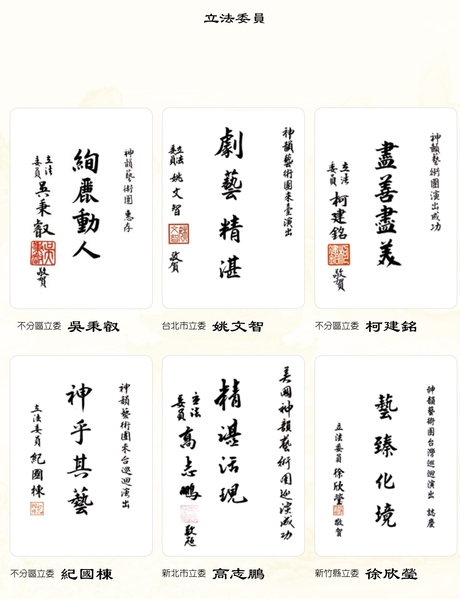 立法委員
神韻藝術團 惠存
絢麗動人
立法委員 吳秉叡 敬賀
不分區立委 吳秉叡
神韻藝術團來臺演出
劇藝精湛
立法委員 姚文智 敬賀
台北市立委 姚文智
神韻藝術團演出成功
盡善盡美
立法委員 柯建銘 敬賀
不分區立委 柯建銘
神韻藝術團來台巡迴演出
神乎其藝
立法委員 紀國棟
不分區立委 紀國棟
美國神韻藝術團巡演成功
精湛活現
立法委員 高志鵬 敬題
新北市立委 高志鵬
神韻藝術團台灣巡迴演出 誌慶
藝臻化境
立法委員 徐欣瑩 敬賀
新竹縣立委 徐欣瑩